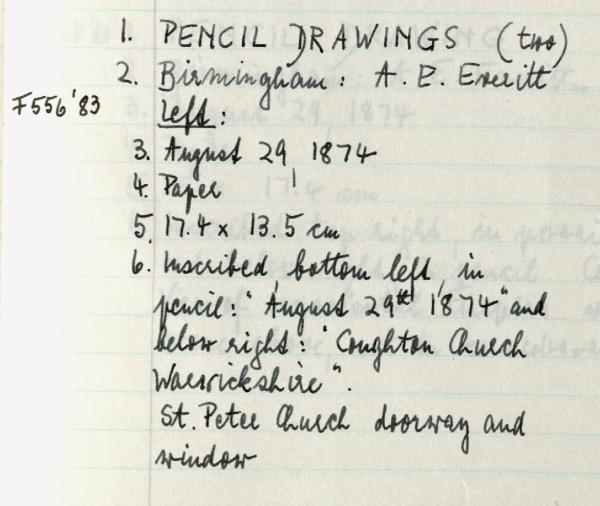 1. PENCIL DRAWINGS (two)
2. Birmingham: A. E. Everitt
F556'83
Left:
3. August 29, 1874
4. Paper
5. 17.4 x 13.5 cm
6. Inscribed, bottom left, in
pencil: "August 29th, 1874" and
below right: "Coughton Church
Warwickshire".
St. Peter Church doorway and
window